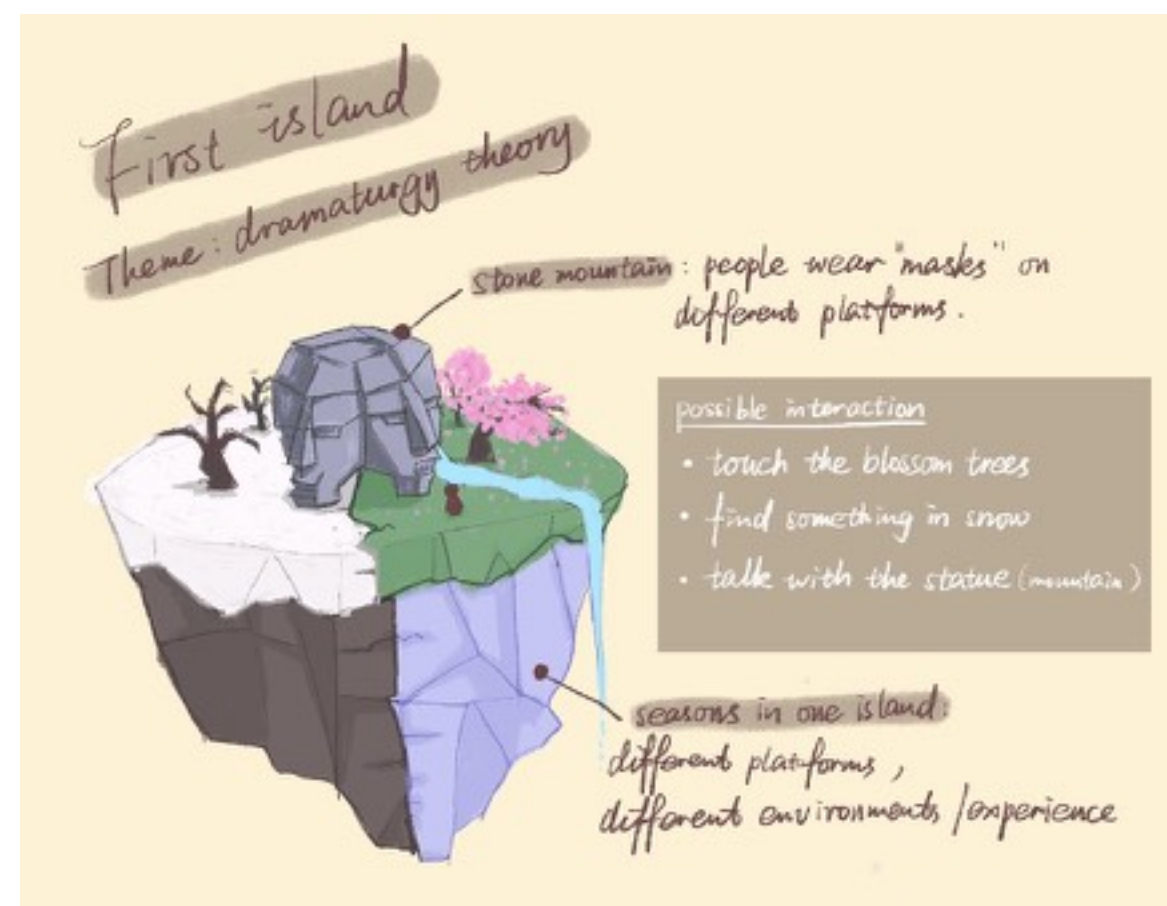 First island
Theme: dramaturgy theory
stone mountain: people wear "masks" on
different platforms.
possible interaction
• touch the blossom trees
• find something in snow
• talk with the statue (mountain)
seasons in one island:
different platforms,
different environments/experience